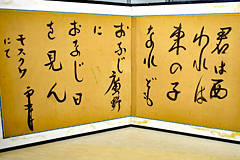 君は西
われは
東の子
なれども
おなじ廣野
に
おなじ日
を見ん
モスクワ
にて